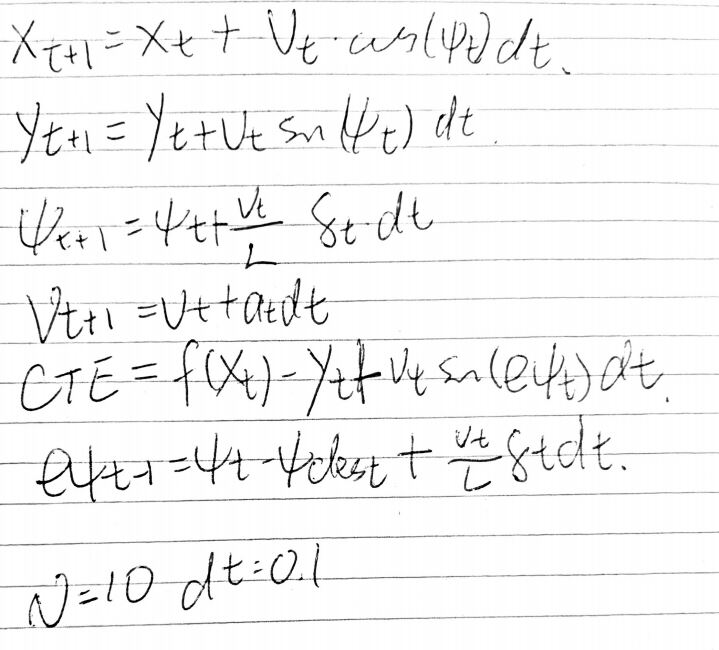 x_{t+1} = x_t + v_t · cos(ψ_t) dt.
y_{t+1} = y_t + v_t sin(ψ_t) dt.
ψ_{t+1} = ψ_t + \frac{v_t}{L} δ_t · dt
v_{t+1} = v_t + a_t dt
CTE = f(x_t) - y_t + v_t sin(eψ_t) dt.
eψ_{t+1} = ψ_t - ψdes_t + \frac{v_t}{L} δ_t dt.
N=10 dt=0.1